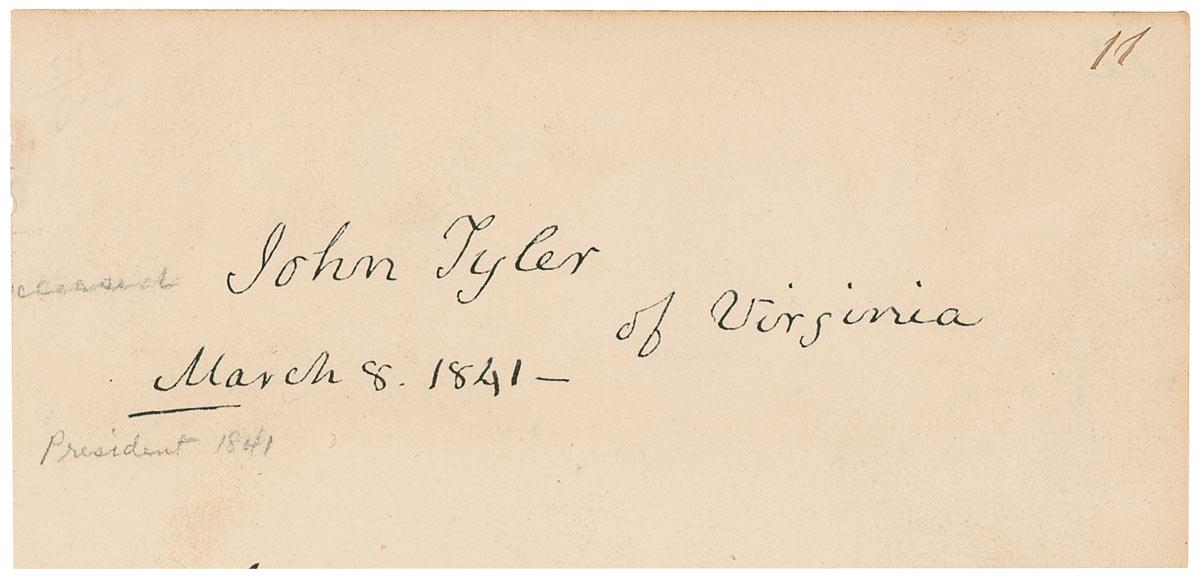 11
John Tyler
of Virginia
March 8. 1841–
President 1841